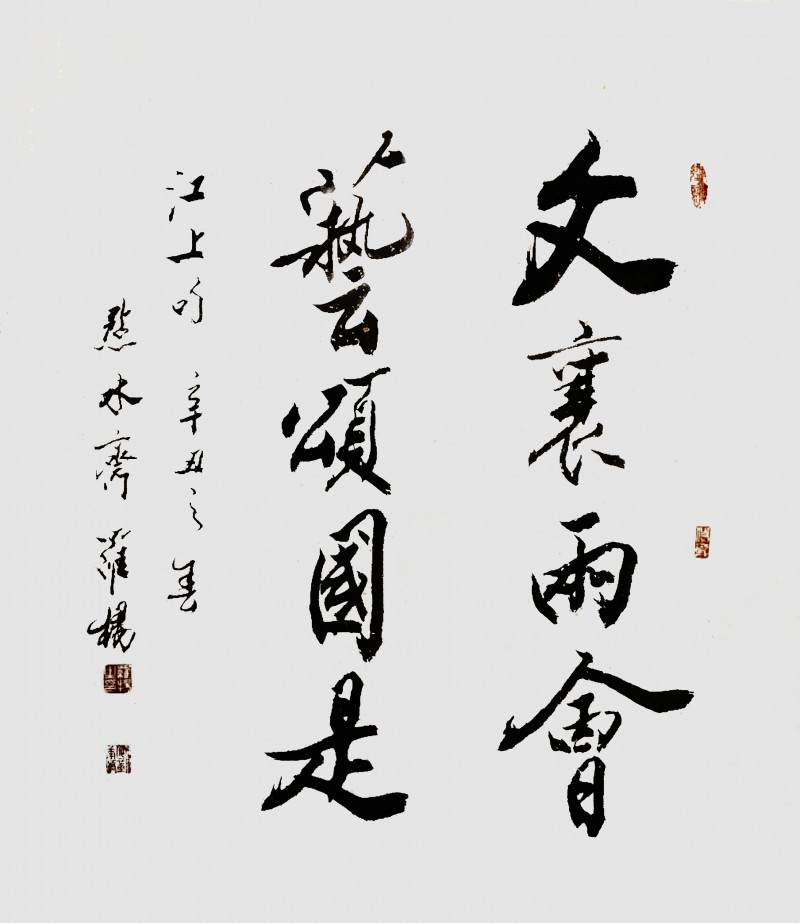 文襄兩會
藝頌國是
江上吟 辛丑之春
點水齋 羅楊